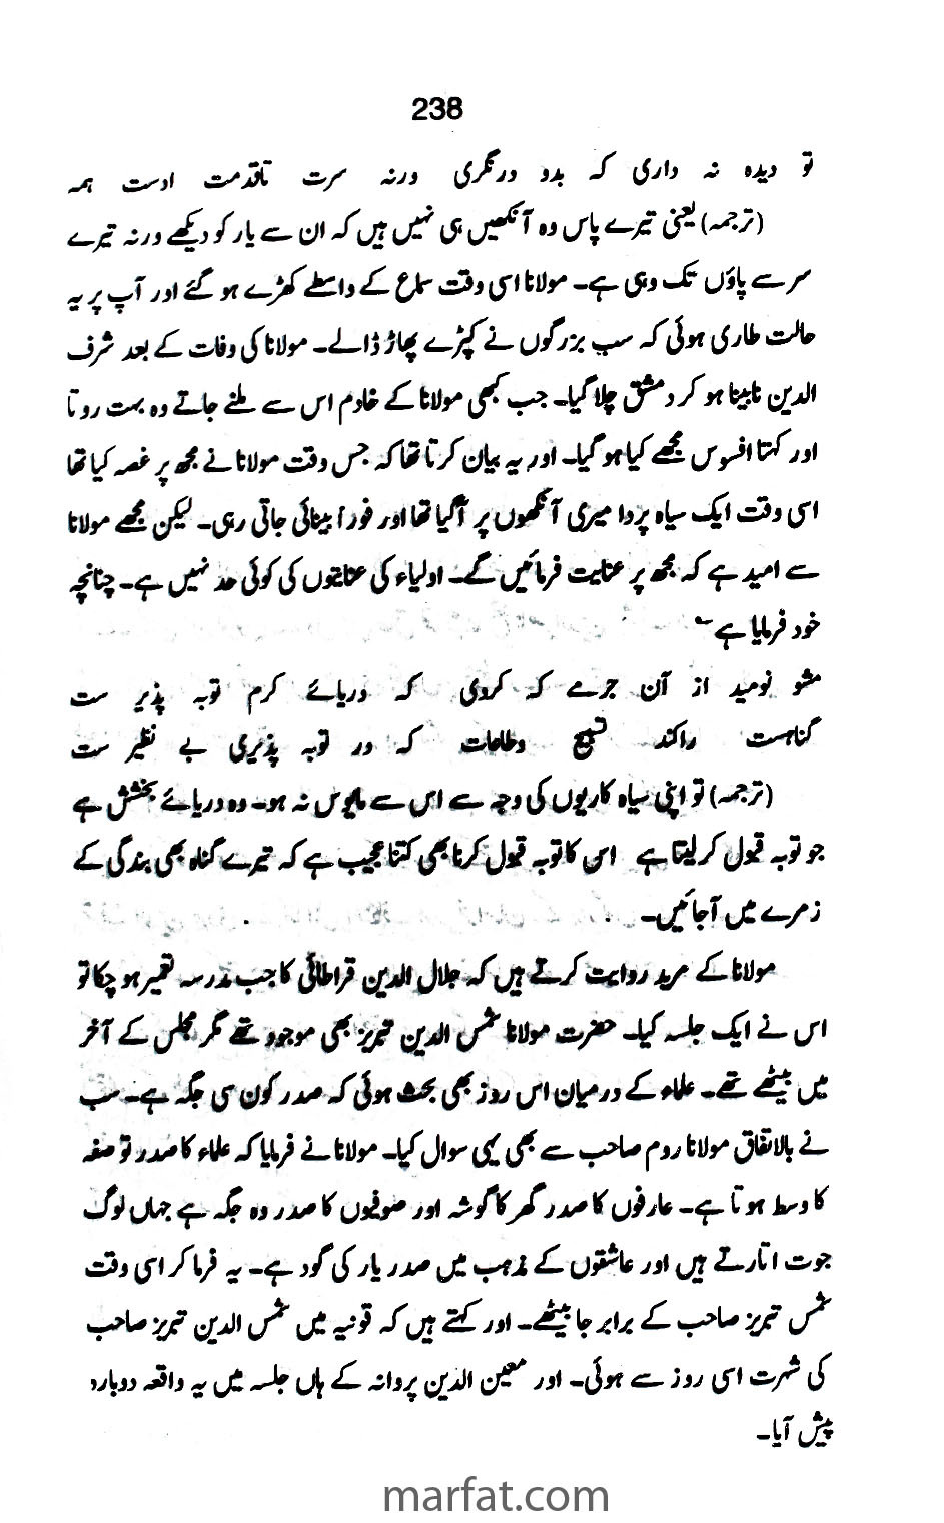 238
تو دیدہ نہ داری کہ بدو درنگری ورنہ سرت تاقدمت اوست ہمہ
(ترجمہ) یعنی تیرے پاس وہ آنکھیں ہی نہیں ہیں کہ ان سے یار کو دیکھے ورنہ تیرے
سر سے پاؤں تک وہی ہے۔ مولانا اسی وقت سماع کے واسطے کھڑے ہو گئے اور آپ پر یہ
حالت طاری ہوئی کہ سب بزرگوں نے کپڑے پھاڑ ڈالے۔ مولانا کی وفات کے بعد شرف
الدین نابینا ہو کر دمشق چلا گیا۔ جب کبھی مولانا کے خادم اس سے ملنے جاتے وہ بہت روتا
اور کہتا افسوس مجھے کیا ہو گیا۔ اور یہ بیان کرتا تھا کہ جس وقت مولانا نے مجھ پر غصہ کیا تھا
اسی وقت ایک سیاہ پردا میری آنکھوں پر آگیا تھا اور فوراً بینائی جاتی رہی۔ لیکن مجھے مولانا
سے امید ہے کہ مجھ پر عنایت فرمائیں گے۔ اولیاء کی عنایتوں کی کوئی حد نہیں ہے۔ چنانچہ
خود فرمایا ہے ؎
مشو نومید از آن جرے کہ کردی کہ دریائے کرم توبہ پذیر ست
گناہست راکند تسبیح وطاعات کہ در توبہ پذیری بے نظیر ست
(ترجمہ) تو اپنی سیاہ کاریوں کی وجہ سے اس سے مایوس نہ ہو۔ وہ دریائے بخشش ہے
جو توبہ قبول کر لیتا ہے اس کا توبہ قبول کرنا بھی کتنا عجیب ہے کہ تیرے گناہ بھی بندگی کے
زمرے میں آجائیں۔
مولانا کے مرید روایت کرتے ہیں کہ جلال الدین قراطائی کا جب مدرسہ تعمیر ہو چکا تو
اس نے ایک جلسہ کیا۔ حضرت مولانا شمس الدین تبریز بھی موجود تھے مگر مجلس کے آخر
میں بیٹھے تھے۔ علماء کے درمیان اس روز بھی بحث ہوئی کہ صدر کون سی جگہ ہے۔ سب
نے بالاتفاق مولانا روم صاحب سے بھی یہی سوال کیا۔ مولانا نے فرمایا کہ علماء کا صدر تو صفہ
کا وسط ہوتا ہے۔ عارفوں کا صدر گھر کا گوشہ اور صوفیوں کا صدر وہ جگہ ہے جہاں لوگ
جوت اتارتے ہیں اور عاشقوں کے مذہب میں صدر یار کی گود ہے۔ یہ فرما کر اسی وقت
شمس تبریز صاحب کے برابر جا بیٹھے۔ اور کہتے ہیں کہ قونیہ میں شمس الدین تبریز صاحب
کی شہرت اسی روز سے ہوئی۔ اور معین الدین پروانہ کے ہاں جلسہ میں یہ واقعہ دوبارہ
پیش آیا۔
marfat.com